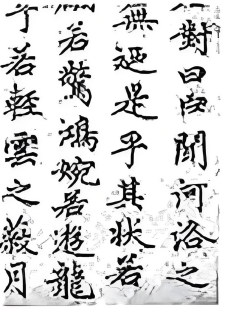 對曰臣聞河洛之
無迺是乎其状若
若驚鴻婉若游龍
兮若輕雲之蔽月